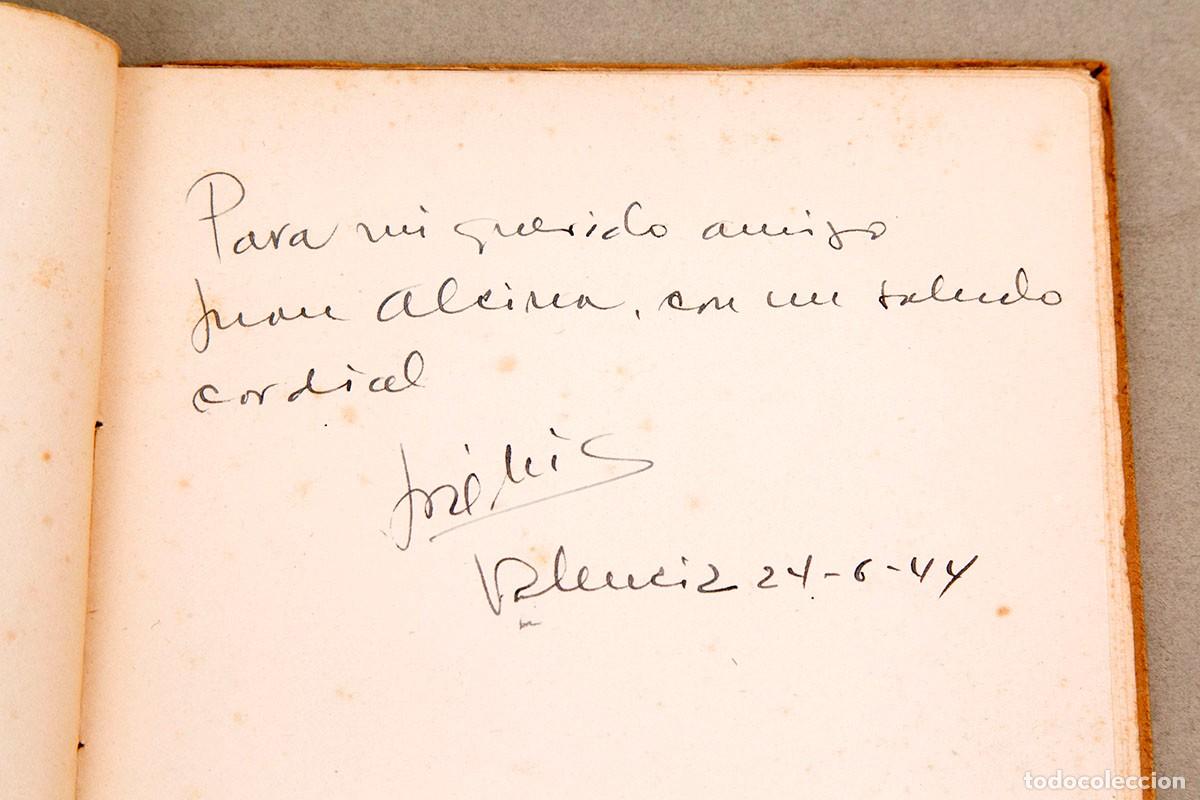 Para mi querido amigo
Juan Alcina, con un saludo
cordial
José
Valencia 24-6-44
todocoleccion